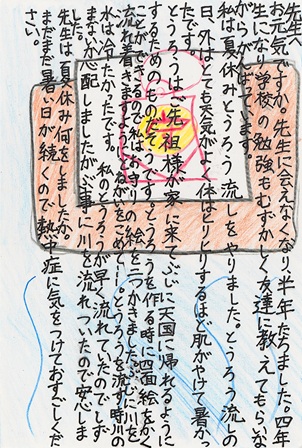 先生お元気ですか。先生に会えなくなり、半年たちました。四年
生になり学校の勉強もむずかしく友達に教えてもらい
ながらがんばっています。
私は夏休みとうろう流しをやりました。とうろう流しの
日、外はとても天気がよく体はヒリヒリするほど肌がやけて暑
たです。
とうろうはご先祖様が家に来てぶじに天国に帰れるように
するためのものだそうです。とうろうを作る時に四面絵をかく
ことができるので私はお守りの絵を二つかきました。ぶじに川を
流れ着きますようにとねがいをこめて…。とうろうを流す時川の
水は冷たかったです。私のとうろうが早く流れていのでしず
まないか心配しましたがぶ事に川を流れていったので安心しま
した。
先生は夏休み何をしましたか。
まだまだ暑い日が続くので熱中症に気をつけておすごしくだ
さい。